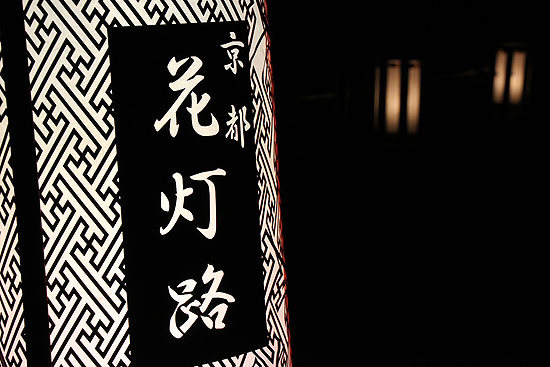 京都
花灯路